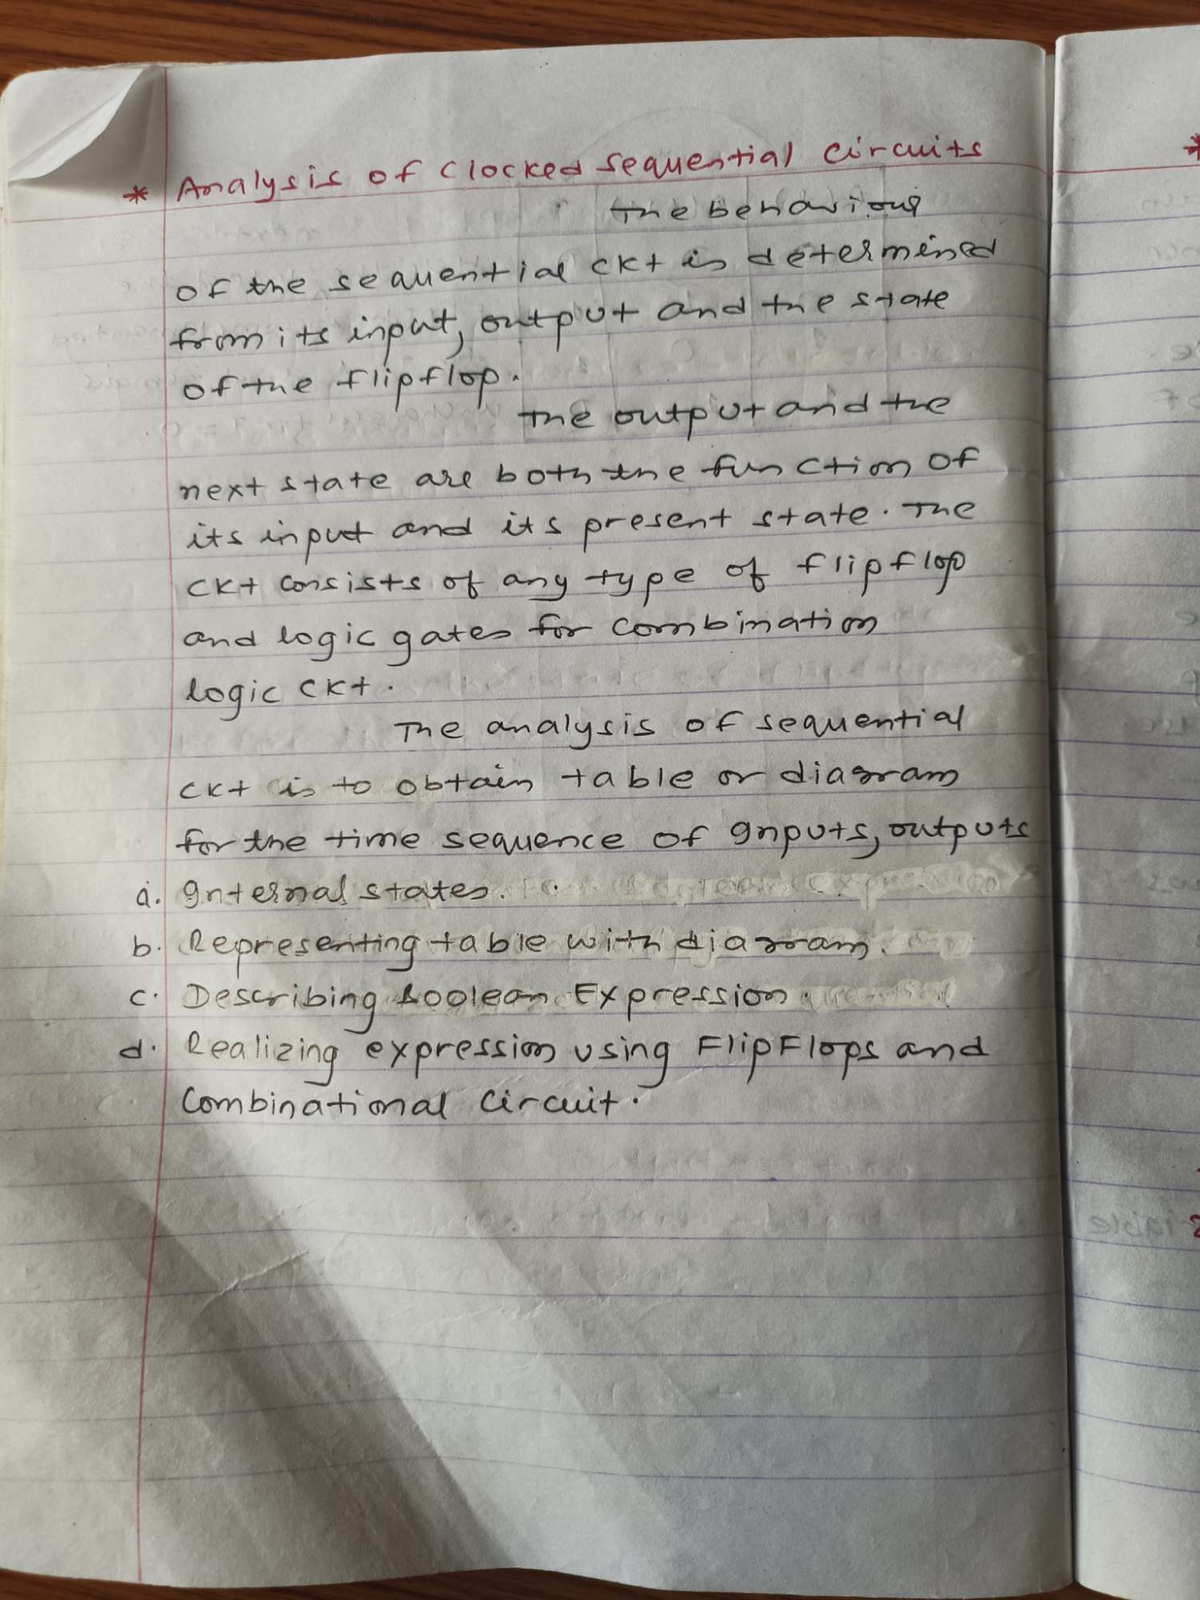 * Analysis of Clocked Sequential Circuits
The behaviour
of the sequential ckt is determined
from its input, output and the state
of the flipflop.
The output and the
next state are both the function of
its input and its present state. The
ckt consists of any type of flipflop
and logic gates for combination
logic ckt.
The analysis of sequential
ckt is to obtain table or diagram
for the time sequence of Inputs, outputs
a. Internal states.
b. Representing table with diagram.
c. Describing Boolean Expression.
d. Realizing expression using FlipFlops and
Combinational Circuit.